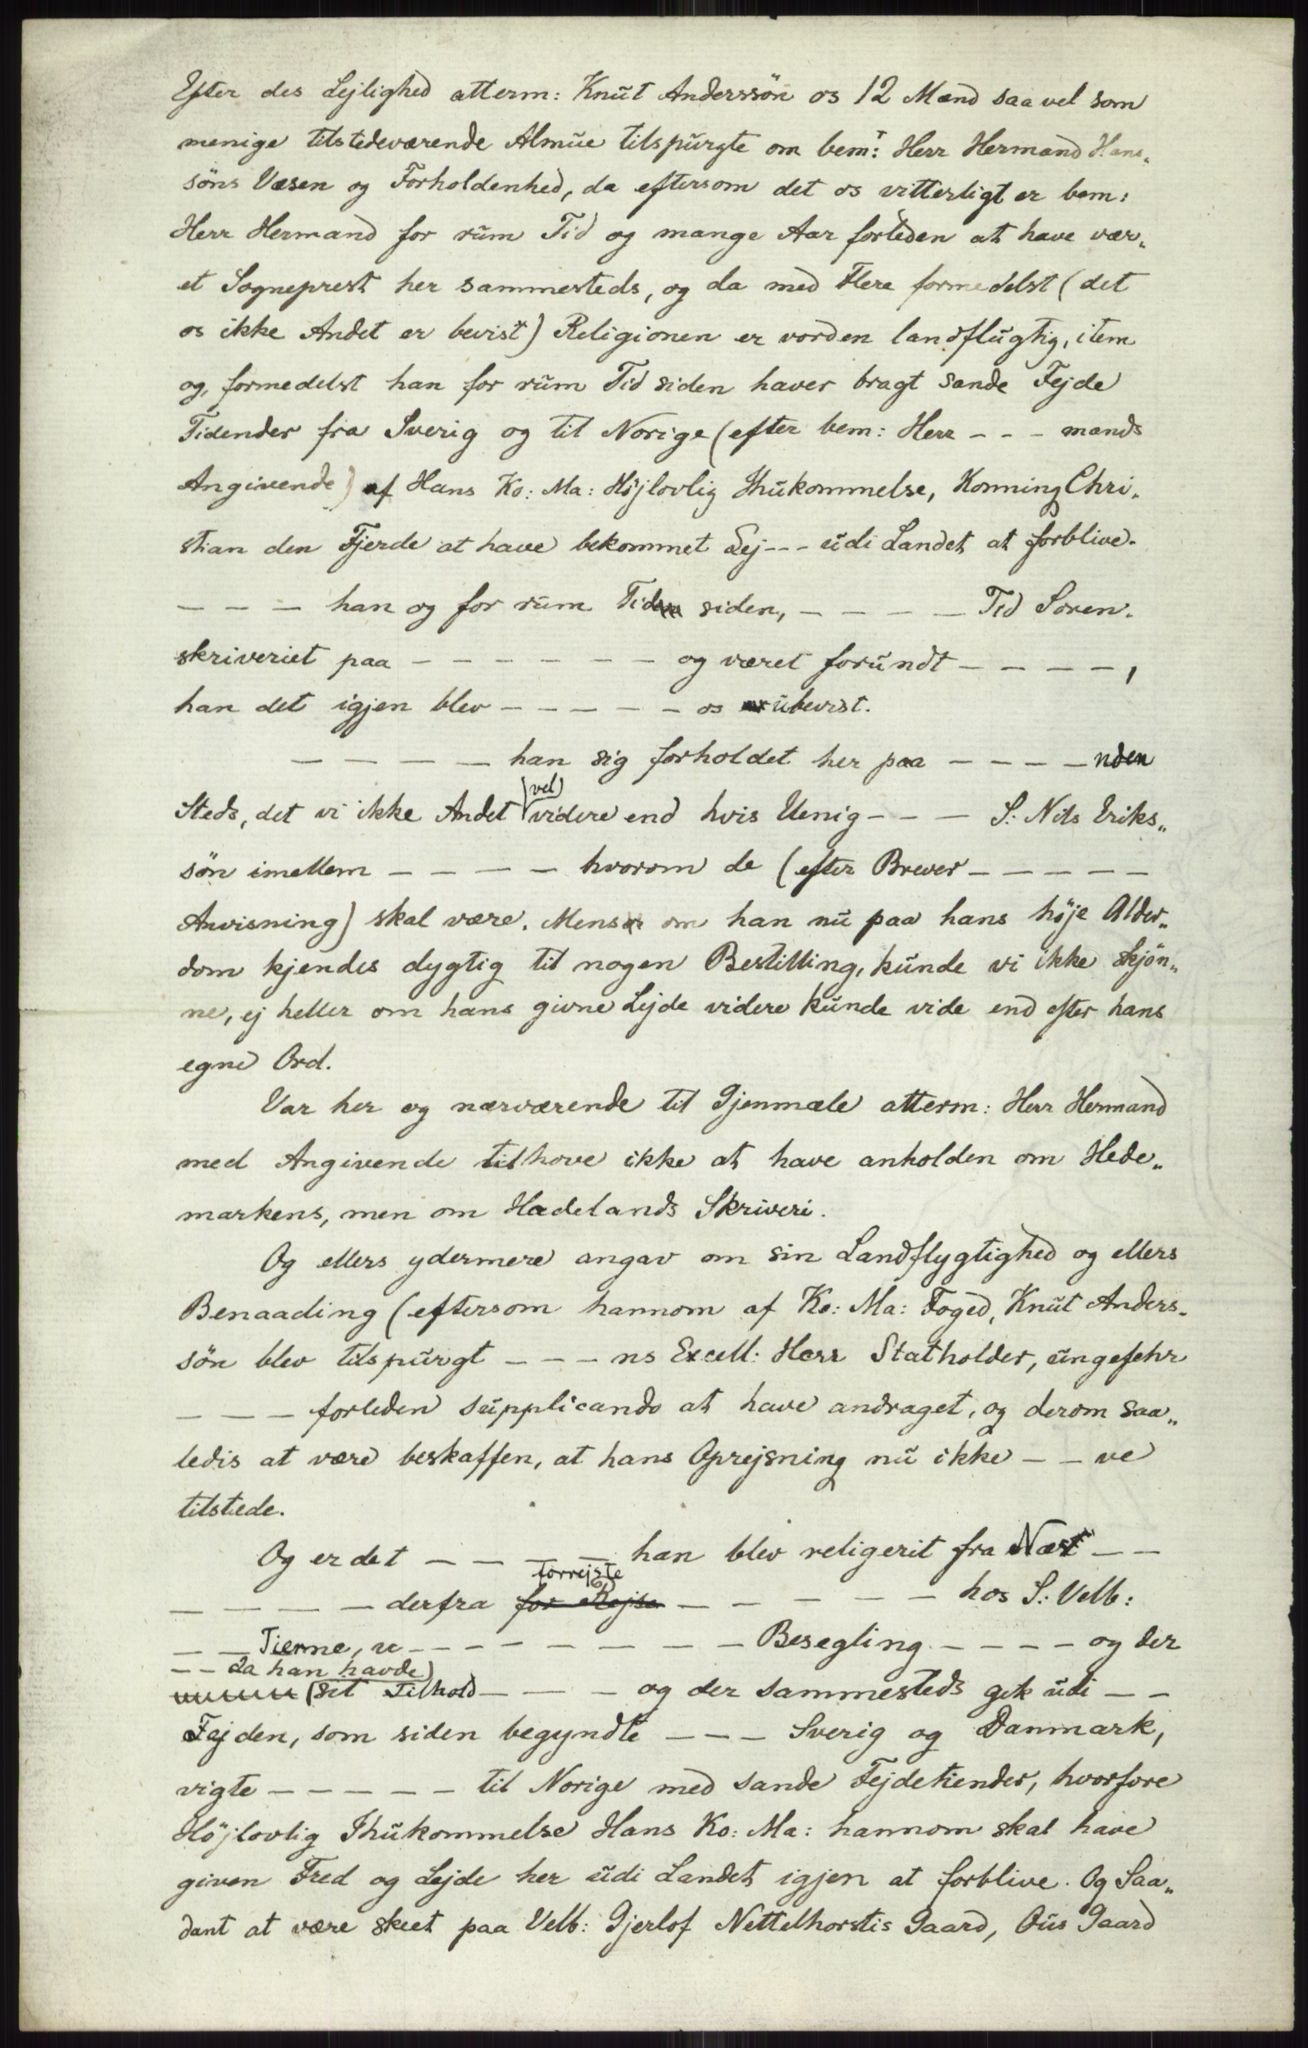 Efter des Lejlighed atterm: Knut Anderssön os 12 Mænd saa vel som
menige tilstedeværende Almue tilspurgte om bem:t Herr Hermand Hans„
söns Væsen og Forholdenhed, da eftersom det os vitterligt er bem:
Herr Hermand for rüm Tid og mange Aar forleden at have vær„
et Sogneprest her sammesteds, og da med Flere formedelst (det
os ikke Andet er bevist) Religionen er vorden landflügtig, item
og, formedelst han for rüm Tid siden haver bragt sande Fejde
Tidender fra Sverig og til Norige (efter bem: Herr – – – mands
Angivende) af Hans Ko: Ma: Højlovlig Ihukommelse, Konning Chri„
stian den Fjerde at have bekommet Lej – – – udi Landet at forblive.
– – – han og for rüm Tid siden, – – – – Tid Soren„
skriveriet paa – – – – – – og været forundt – – – – ,
han det igjen blev – – – – – os ubevist.
– – – – – han sig forholdet her paa – – – – nden
Steds, det vi ikke Andet (vel) videre end hvis Uenig – – – S: Nils Eriks„
sön imellem – – – – hvorom de (efter Brever – – – – –
Anvisning) skal være. Mens om han nü paa hans höje Alder„
dom kjendes dygtig til nogen Bestilling, künde vi ikke skjön„
ne, ej heller om hans givne Lejde videre künde vide end efter hans
egne Ord.
Var her og nærværende til Gjenmæle atterm: Herr Hermand
med Angivende tilhove ikke at have anholden om Hede„
markens, men om Hadelands Skriveri.
Og ellers ydermere angav om sin Landflygtighed og ellers
Benaading (eftersom hannom af Ko: Ma: Foged, Knüt Anders„
sön blev tilspurgt – – – ns Excell: Herr Statholder, üngefehr
– – – forleden supplicando at have andraget, og derom saa„
ledis at være beskaffen, at hans Oprejsning nü ikke – – ve
tilstede.
Og er det – – – – – han blev religerit fra Næst – –
– – – – – derfra for Rejse torrejste – – – – – – hos S: Velb:
– – Tierne, u – – – – – – – – Besegling – – – – og der
– – da han havde) (sit Tilhold – – – – og der sammesteds gik üdi – –
Fejden, som siden begyndte – – – Sverig og Danmark,
vigte – – – – – til Norige med sande Fejdetiender, hvorfore
Höjlovlig Ihükommelse Hans Ko: Ma: hannom skal have
given Fred og Lejde her üdi Landet igjen at forblive. Og Saa„
dant at være skeet paa Velb: Gjerlof Nettelhorstis Gaard, Oüs Gaard